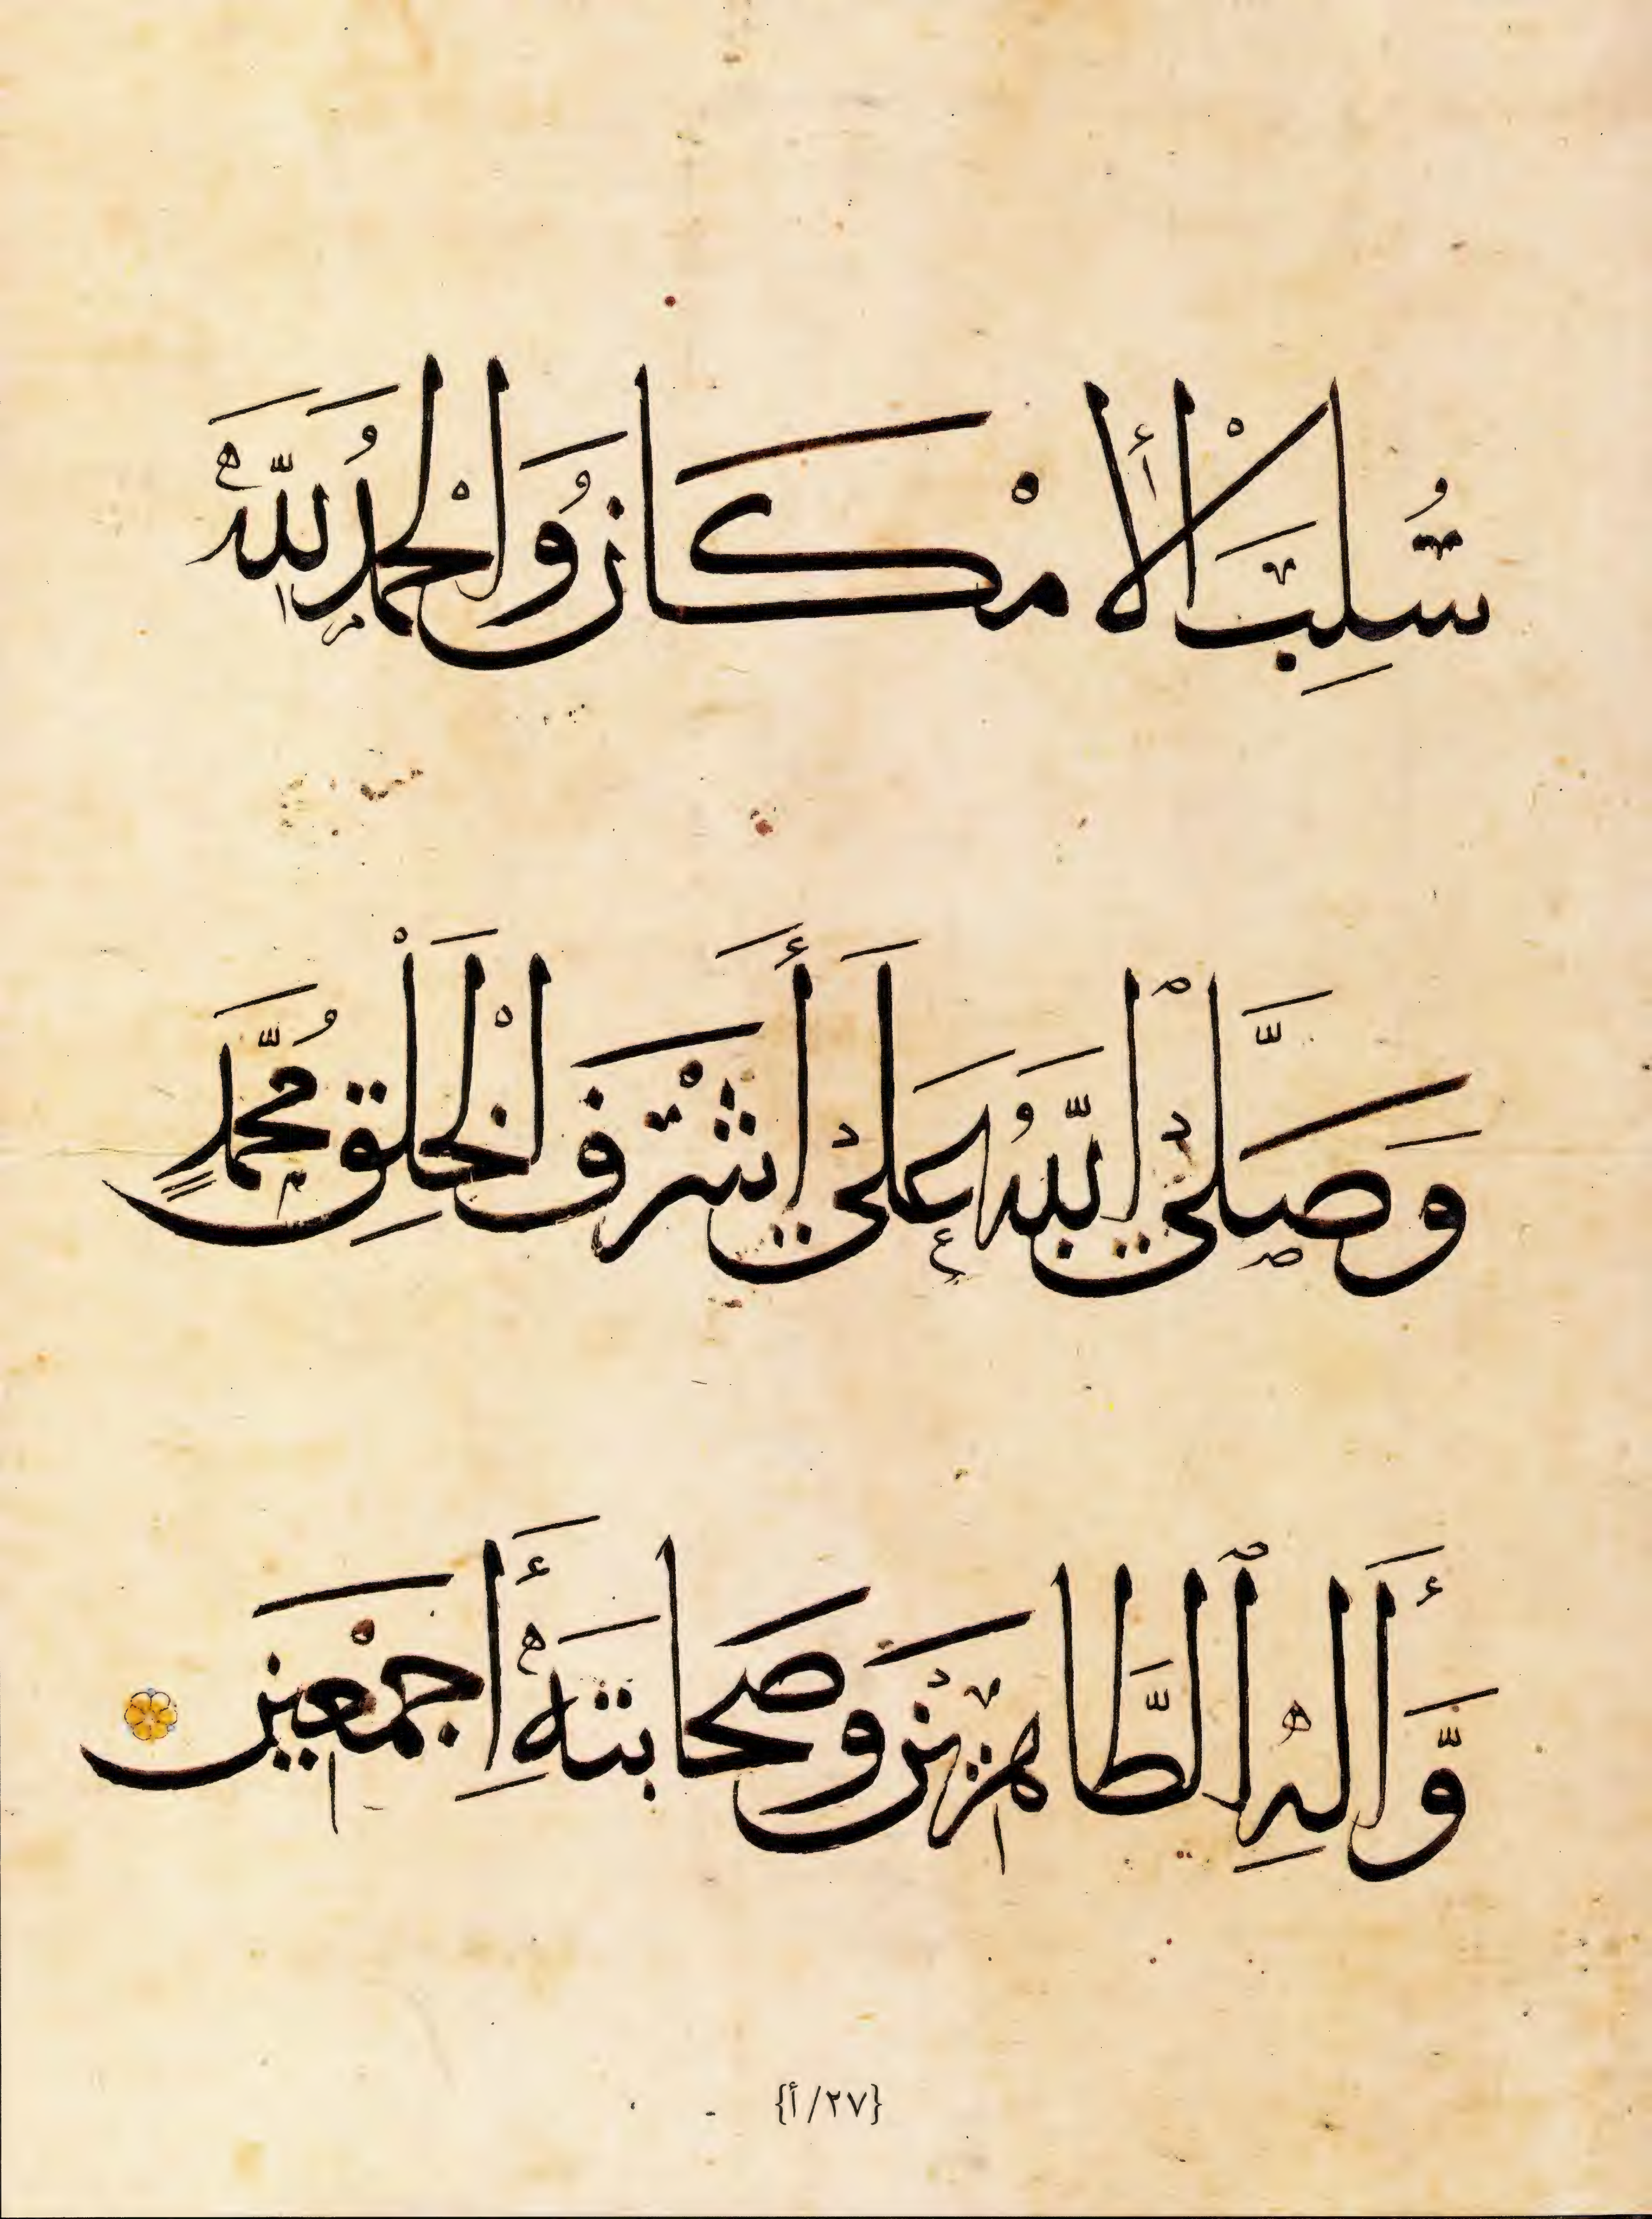 سُلِبَ الْأمْكَانُ وَالْحَمْدُ لِلَّهِ
وَصَلَّى ٱللَّهُ عَلَى أَشْرَفِ الْخَلْقِ مُحَمَّدٍ
وَّأَلِهِ ٱلطَّاهِرِينَ وَصَحَابَتِهِ أَجْمَعِين
{٢٧/أ}